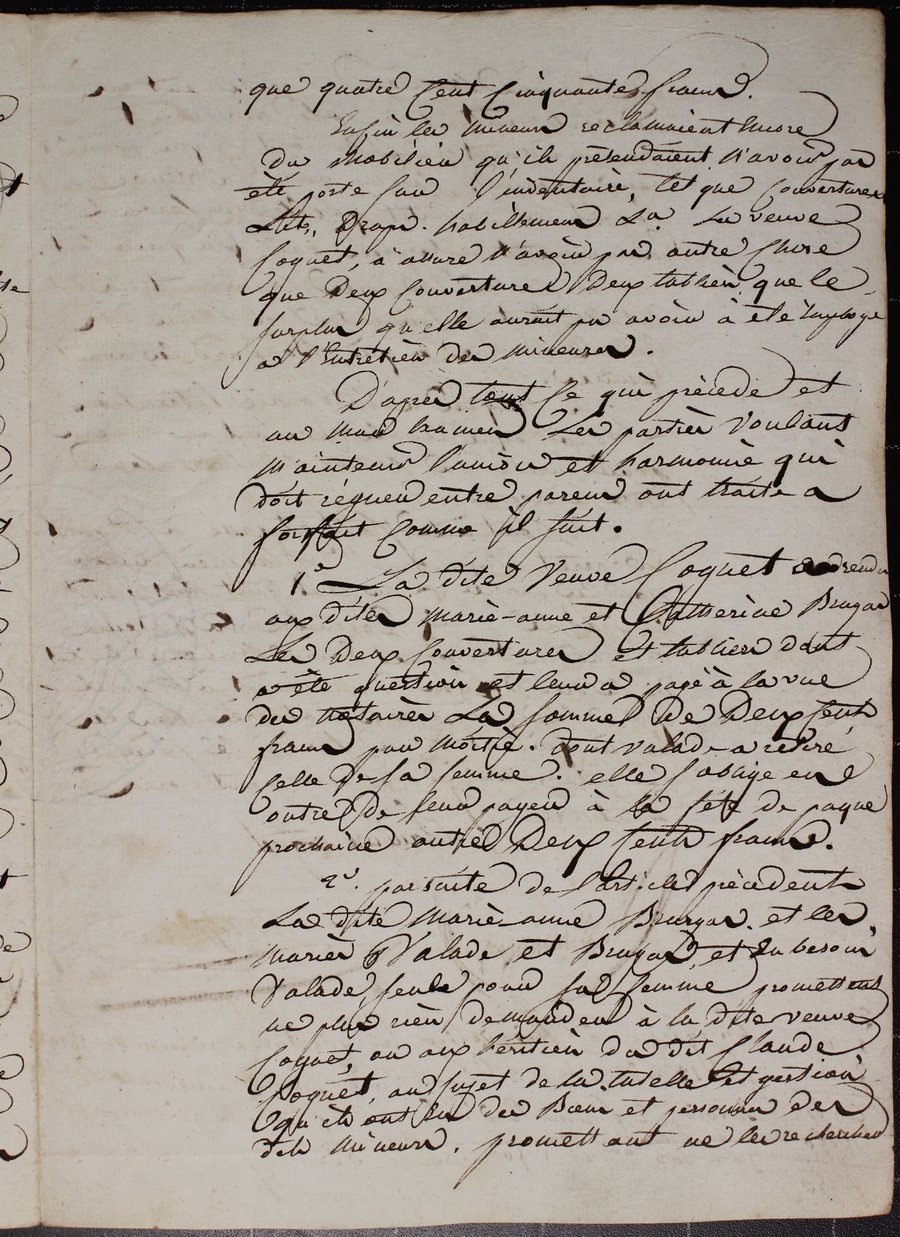 que quatre Cent Cinquante francs.
Enfin les mineurs reclamaient Encore
Du Mobilier qu'ils prétendaient n'avoir pas
été porté sur l'inventaire, tel que Couvertures
Lits, Draps. habillements La. La veuve
Coquet, à assuré n'avoir pas autre Chose
que Deux Couvertures Deux tabliers, que le
surplus qu'elle aurait pu avoir à été Employé
a l'Entretien des mineures.
D'après tout Ce qui précède et
au Les parties Voulant
Maintenir l'union et harmonie qui
doit régner entre parens ont traité a
forfait Comme il suit.
1.° La dite Veuve Coquet rendu
aux dites Marie-anne et Catherine Brugas
Les Deux Couvertures Et tabliers dont
a été question et leur a payé à la vue
des Notaires La somme De Deux Cents
francs par moitié. dont Valade a retiré
Celle de sa femme. elle s'oblige en
outre de leur payer à la fête de paque
prochaine autres Deux Cents francs.
2.° par suite de l'article précédent
La dite Marie-anne Brugas. et les
Mariés Valade et Brugas, et En besoin
Valade, seule pour sa femme promettent
ne plus rien demander à la dite veuve
Coquet, ou aux héritiers du dit Claude
Coquet, au sujet de la tutelle Et gestion
qu'ils ont Eu des Biens et personnes des
dits Mineurs. promettant ne les rechercher